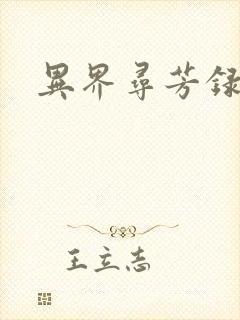 異界尋芳録
王立志